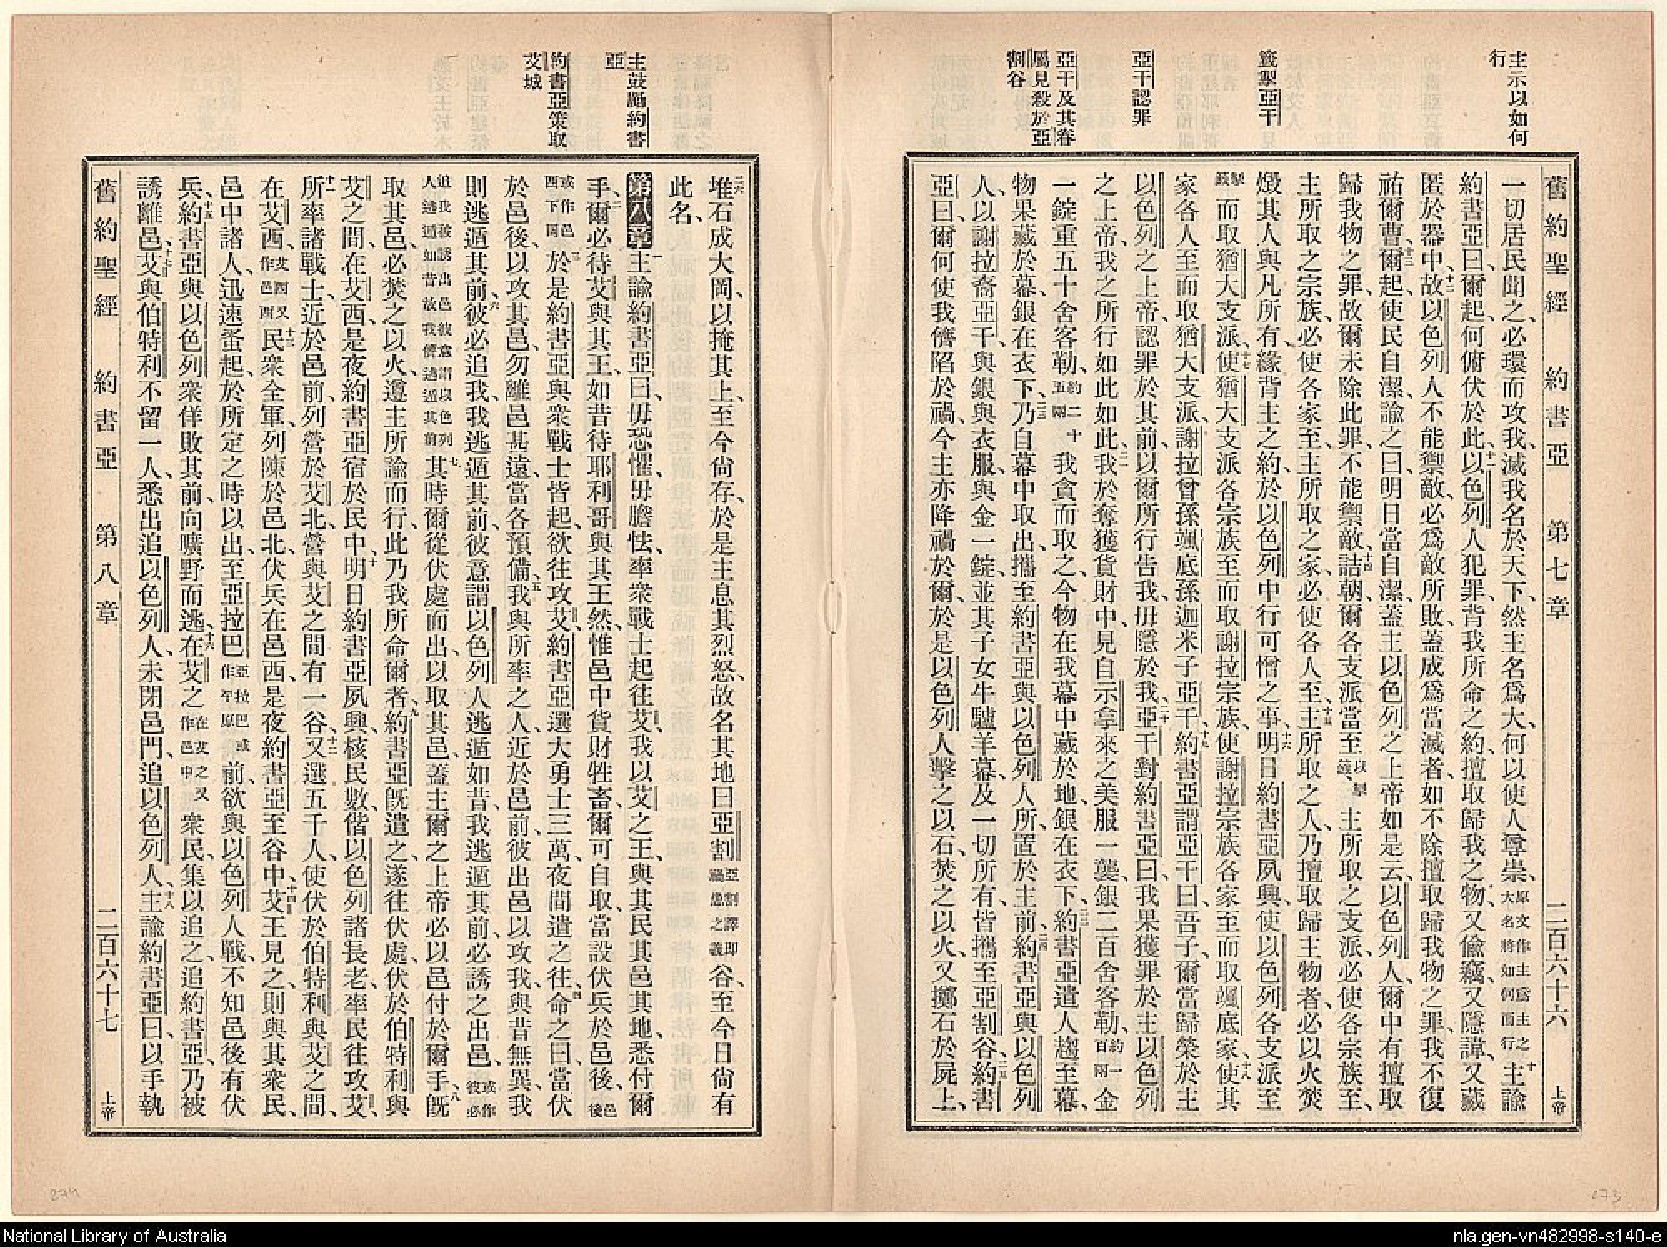 舊約聖經 約書亞 第七章 二百六十六 上帝
主示以如何
行
籤掣亞干
亞干認罪
亞干及其眷
屬見殺於亞
割谷
一切居民聞之、必環而攻我、滅我名於天下、然主名爲大、何以使人尊崇、原文作主爲主之大名將如何而行十主諭
約書亞曰、爾起、何俯伏於此、十一以色列人犯罪、背我所命之約、擅取歸我之物、又偷竊、又隱諱、又藏
匿於器中、十二故以色列人不能禦敵、必爲敵所敗、蓋成爲當滅者、如不除擅取歸我物之罪、我不復
祐爾曹、十三爾起、使民自潔、諭之曰、明日當自潔、蓋主以色列之上帝如是云、以色列人、爾中有擅取
歸我物之罪、故爾未除此罪、不能禦敵、十四詰朝、爾各支派當至、以掣籤主所取之支派、必使各宗族至、
主所取之宗族、必使各家至、主所取之家、必使各人至、十五主所取之人、乃擅取歸主物者、必以火焚
燬其人與凡所有、緣背主之約、於以色列中行可憎之事、十六明日約書亞夙興、使以色列各支派至、
掣籤而取猶大支派、十七使猶大支派各宗族至、而取謝拉宗族、使謝拉宗族各家至、而取颯底家、十八使其
家各人至、而取猶大支派謝拉曾孫颯底孫迦米子亞干、十九約書亞謂亞干曰、吾子、爾當歸榮於主
以色列之上帝、認罪於其前、以爾所行告我、毋隱於我、二十亞干對約書亞曰、我果獲罪於主以色列
之上帝、我之所行如此如此、二一我於奪獲貨財中、見自示拿來之美服一襲、銀二百舍客勒、約一百兩金
一錠重五十舍客勒、約二十五兩我貪而取之、今物在我幕中藏於地、銀在衣下、二二約書亞遣人趨至幕、
物果藏於幕、銀在衣下、二三乃自幕中取出、攜至約書亞與以色列人所、置於主前、二四約書亞與以色列
人、以謝拉裔亞干、與銀與衣服、與金一錠、並其子女牛驢羊幕、及一切所有、皆攜至亞割谷、二五約書
亞曰、爾何使我儕陷於禍、今主亦降禍於爾、於是以色列人擊之以石、焚之以火、又擲石於屍上、
主鼓勵約書
亞
約書亞策取
艾城
二六堆石成大岡、以掩其上、至今尚存、於是主息其烈怒、故名其地曰亞割亞割譯即禍患之義谷、至今日尚有
此名、
第八章 一主諭約書亞曰、毋恐懼、毋膽怯、率衆戰士起往艾、我以艾之王、與其民、其邑、其地、悉付爾
手、二爾必待艾與其王、如昔待耶利哥與其王然、惟邑中貨財牲畜、爾可自取、當設伏兵於邑後、邑後
或作邑西下同三於是約書亞與衆戰士皆起、欲往攻艾、約書亞選大勇士三萬、夜間遣之往、四命之曰、當伏
於邑後、以攻其邑、勿離邑甚遠、當各預備、五我與所率之人近於邑前、彼出邑以攻我、與昔無異、我
則逃遁其前、六彼必追我、我逃遁其前、彼意謂以色列人逃遁如昔、我逃遁其前、必誘之出邑、或作彼必
追我被誘出邑彼意謂以色列人逃遁如昔故我儕逃遁其前七其時爾從伏處而出、以取其邑、蓋主爾之上帝必以邑付於爾手、八旣
取其邑、必焚之以火、遵主所諭而行、此乃我所命爾者、九約書亞旣遣之、遂往伏處、伏於伯特利與
艾之間、在艾西、是夜約書亞宿於民中、十明日約書亞夙興、核民數、偕以色列諸長老、率民往攻艾、
十一所率諸戰士、近於邑前、列營於艾北、營與艾之間有一谷、十二又選五千人、使伏於伯特利與艾之間、
在艾西、艾西又作邑西十三民衆全軍、列陳於邑北、伏兵在邑西、是夜約書亞至谷中、十四艾王見之、則與其衆民、
邑中諸人、迅速蚤起、於所定之時以出、至亞拉巴亞拉巴或作平原前、欲與以色列人戰、不知邑後有伏
兵、十五約書亞與以色列衆佯敗其前、向曠野而逃、十六在艾之在艾之又作邑中衆民集以追之、追約書亞、乃被
誘離邑、十七艾與伯特利不留一人、悉出追以色列人、未閉邑門、追以色列人、十八主諭約書亞曰、以手執
舊約聖經 約書亞 第八章 二百六十七 上帝
274
273
National Library of Australia
nla.gen-vn482998-s140-e